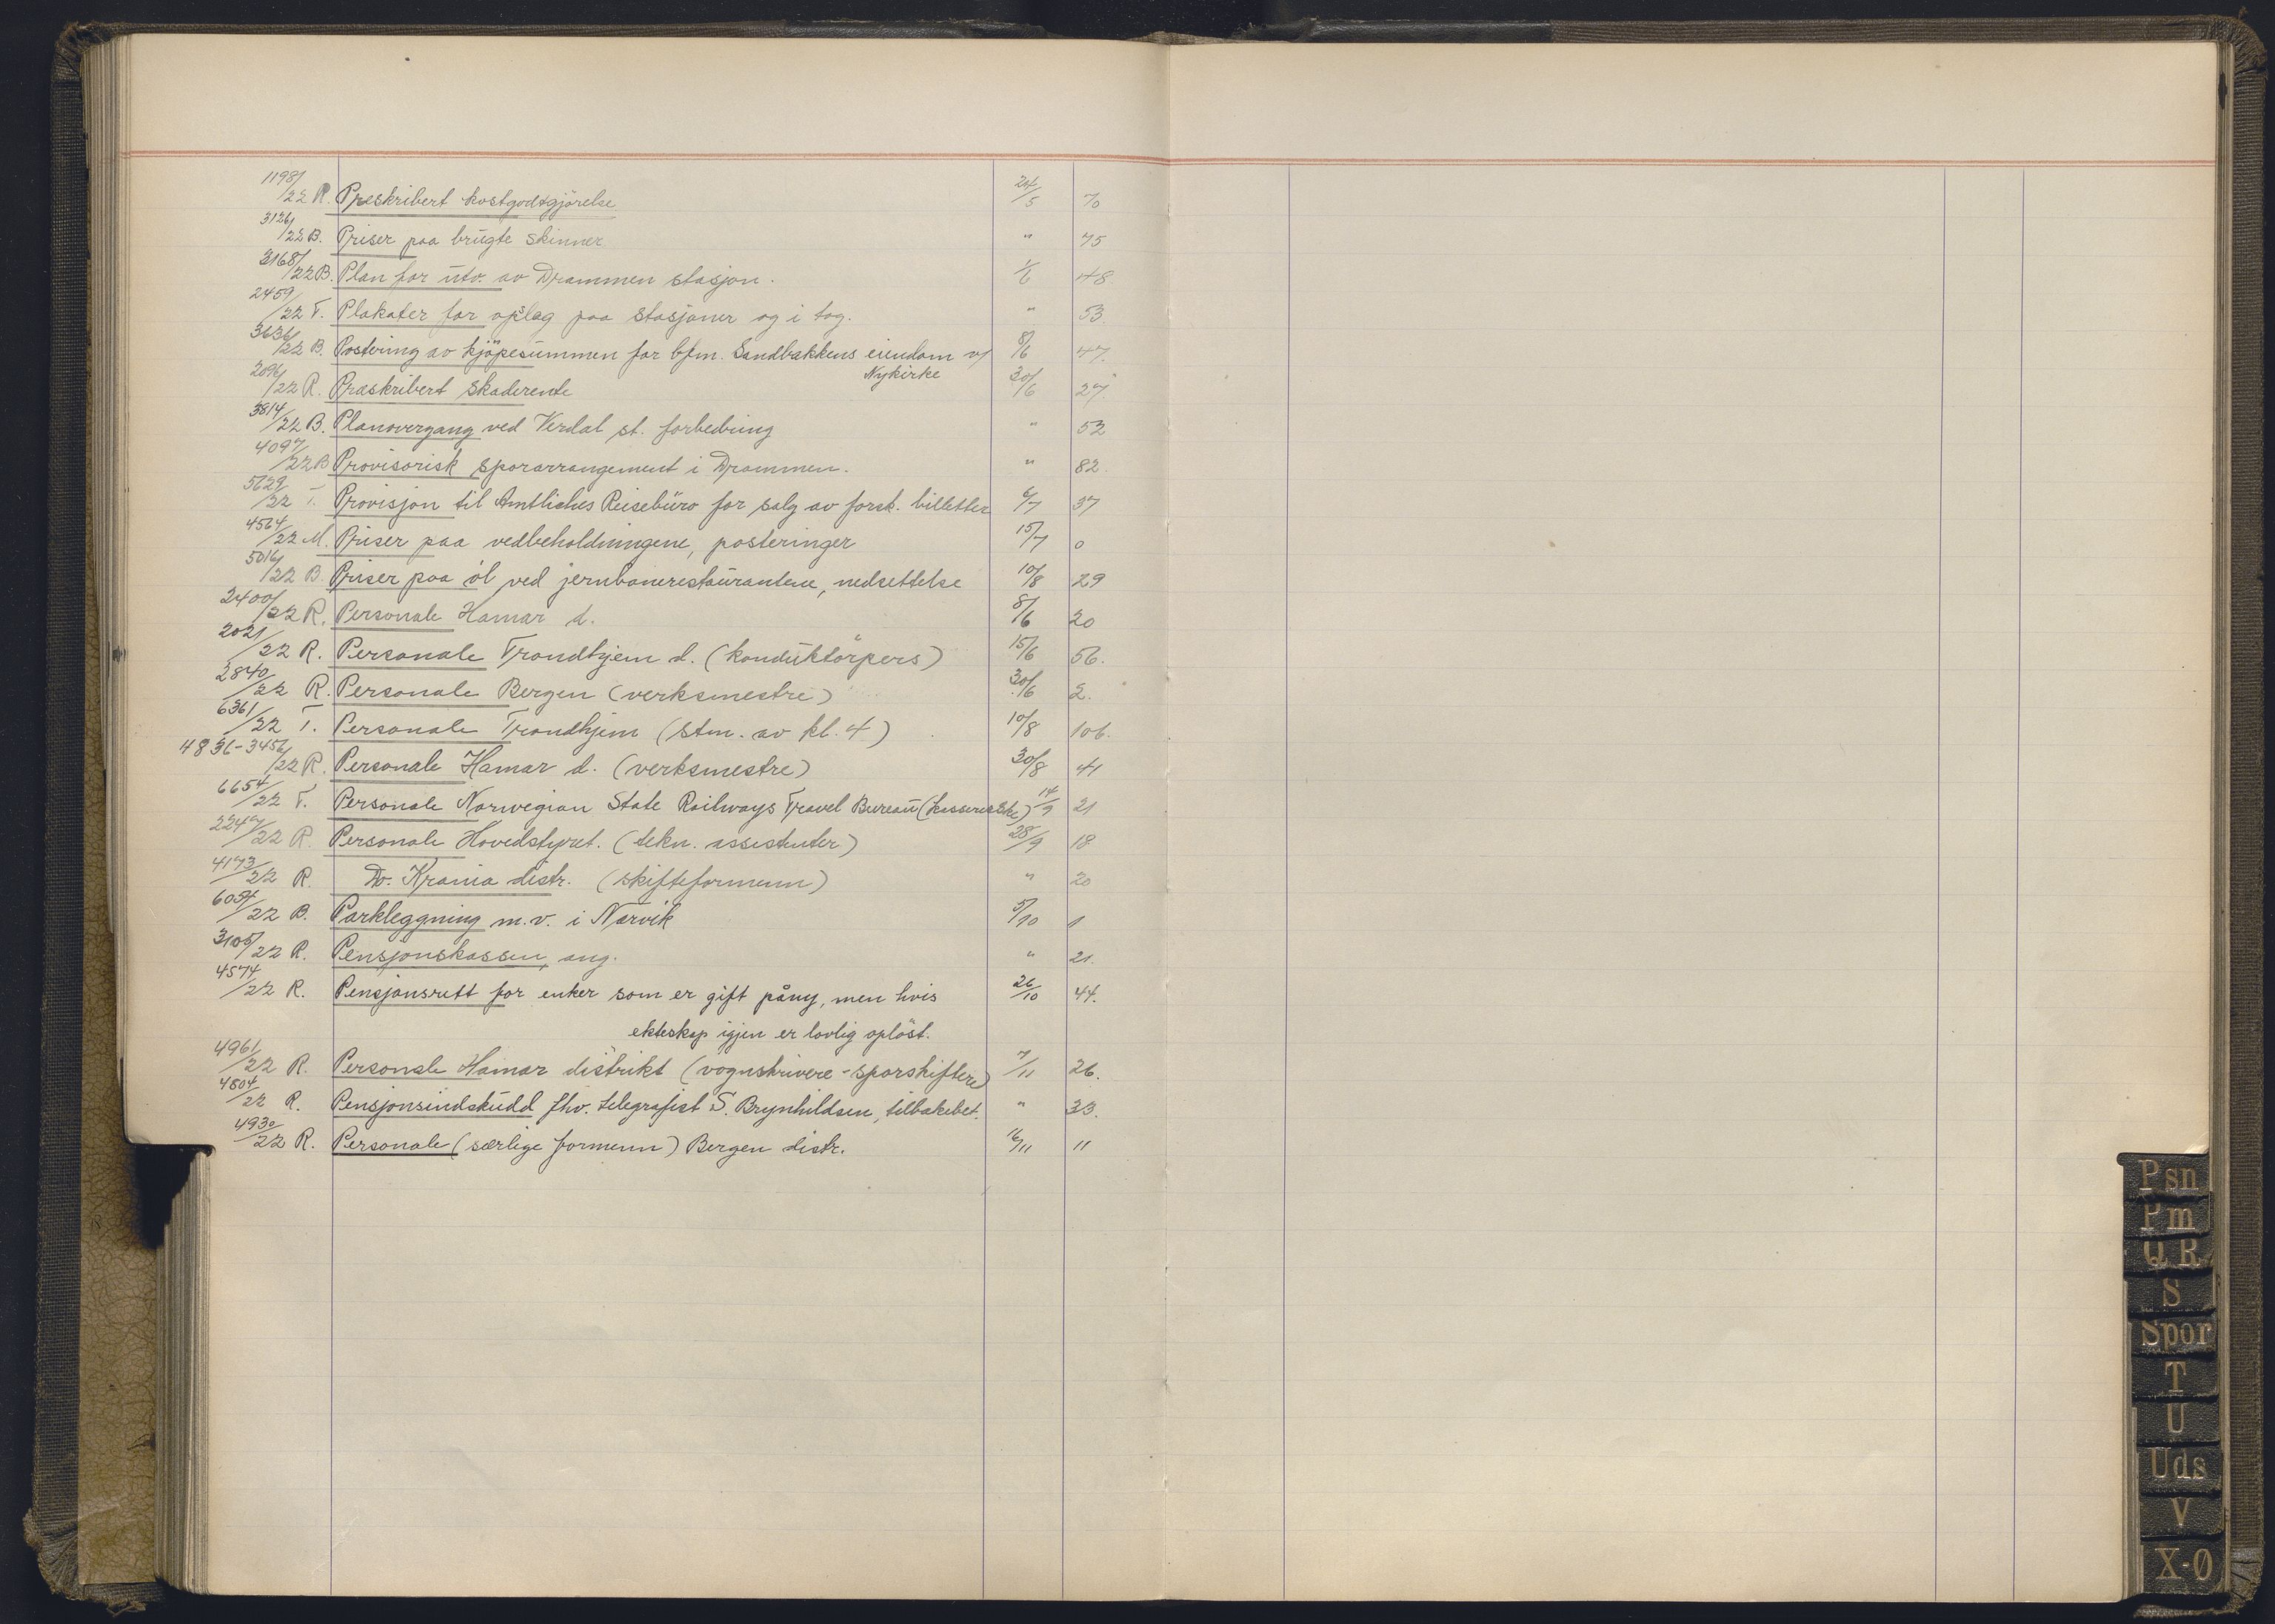 1198/22 R. Preskribert kostgodtgjörelse 24/5 70
3126/22 B. Priser paa brugte skinner " 75
3168/22 B. Plan for utv. av Drammen stasjon. 1/6 48
2459/22 T. Plakater for opslag paa stasjoner og i tog. " 53
3636/22 B. Postering av kjöpesummen for bfm. Sandbakkens eiendom v/ 8/6 47.
Nykirke
2096/22 R. Præskribert skaderente 30/6 27
3814/22 B. Planovergang ved Verdal st. forbedring " 52
4097/22 B Provisorisk sporarrangement i Drammen. " 82.
5629/22 T. Provisjon til Amtliches Reisebüro for salg av forsk. billetter 6/7 37
4564/22 M. Priser paa vedbeholdningene, posteringer 15/7 0
5016/22 B. Priser paa öl ved jernbanerestaurantene, nedsettelse 10/8 29
2400/22 R. Personale Hamar d. 8/6 20
2021/22 R. Personale Trondhjem d. (konduktörpers) 15/6 56.
2840/22 R. Personale Bergen (verksmestre) 30/6 2.
6361/22 T. Personale Trondhjem (stm. av kl. 4) 10/8 106.
4836-3456/22 R. Personale Hamar d. (verksmestre) 30/8 41
6654/22 T. Personale Norwegian State Railways Travel Bureau 14/9 21
2247/22 R. Personale Hovedstyret. (tekn. assistenter) 28/9 18
4173/22 R. Do. Krania distr. (skifteformenn) " 20
6054/22 B. Parkleggning m.v. i Narvik 5/10 1
3105/22 R. Pensjonskassen, ang. " 21.
4574/22 R. Pensjonsrett for enker som er gift påny, men hvis 26/10 44.
ekteskap igjen er lovlig oplöst.
4961/22 R. Personale Hamar distrikt (vognskrivere - sporskiftere) 7/11 26.
4804/22 R. Pensjonsindskudd fhv. telegrafist S. Brynhildsen, tilbakebet. " 33.
4930/22 R. Personale (særlige formenn) Bergen distr. 16/11 11
Psn
Pm
Q R
S
Spor
T
U
Uds
V
X-Ø